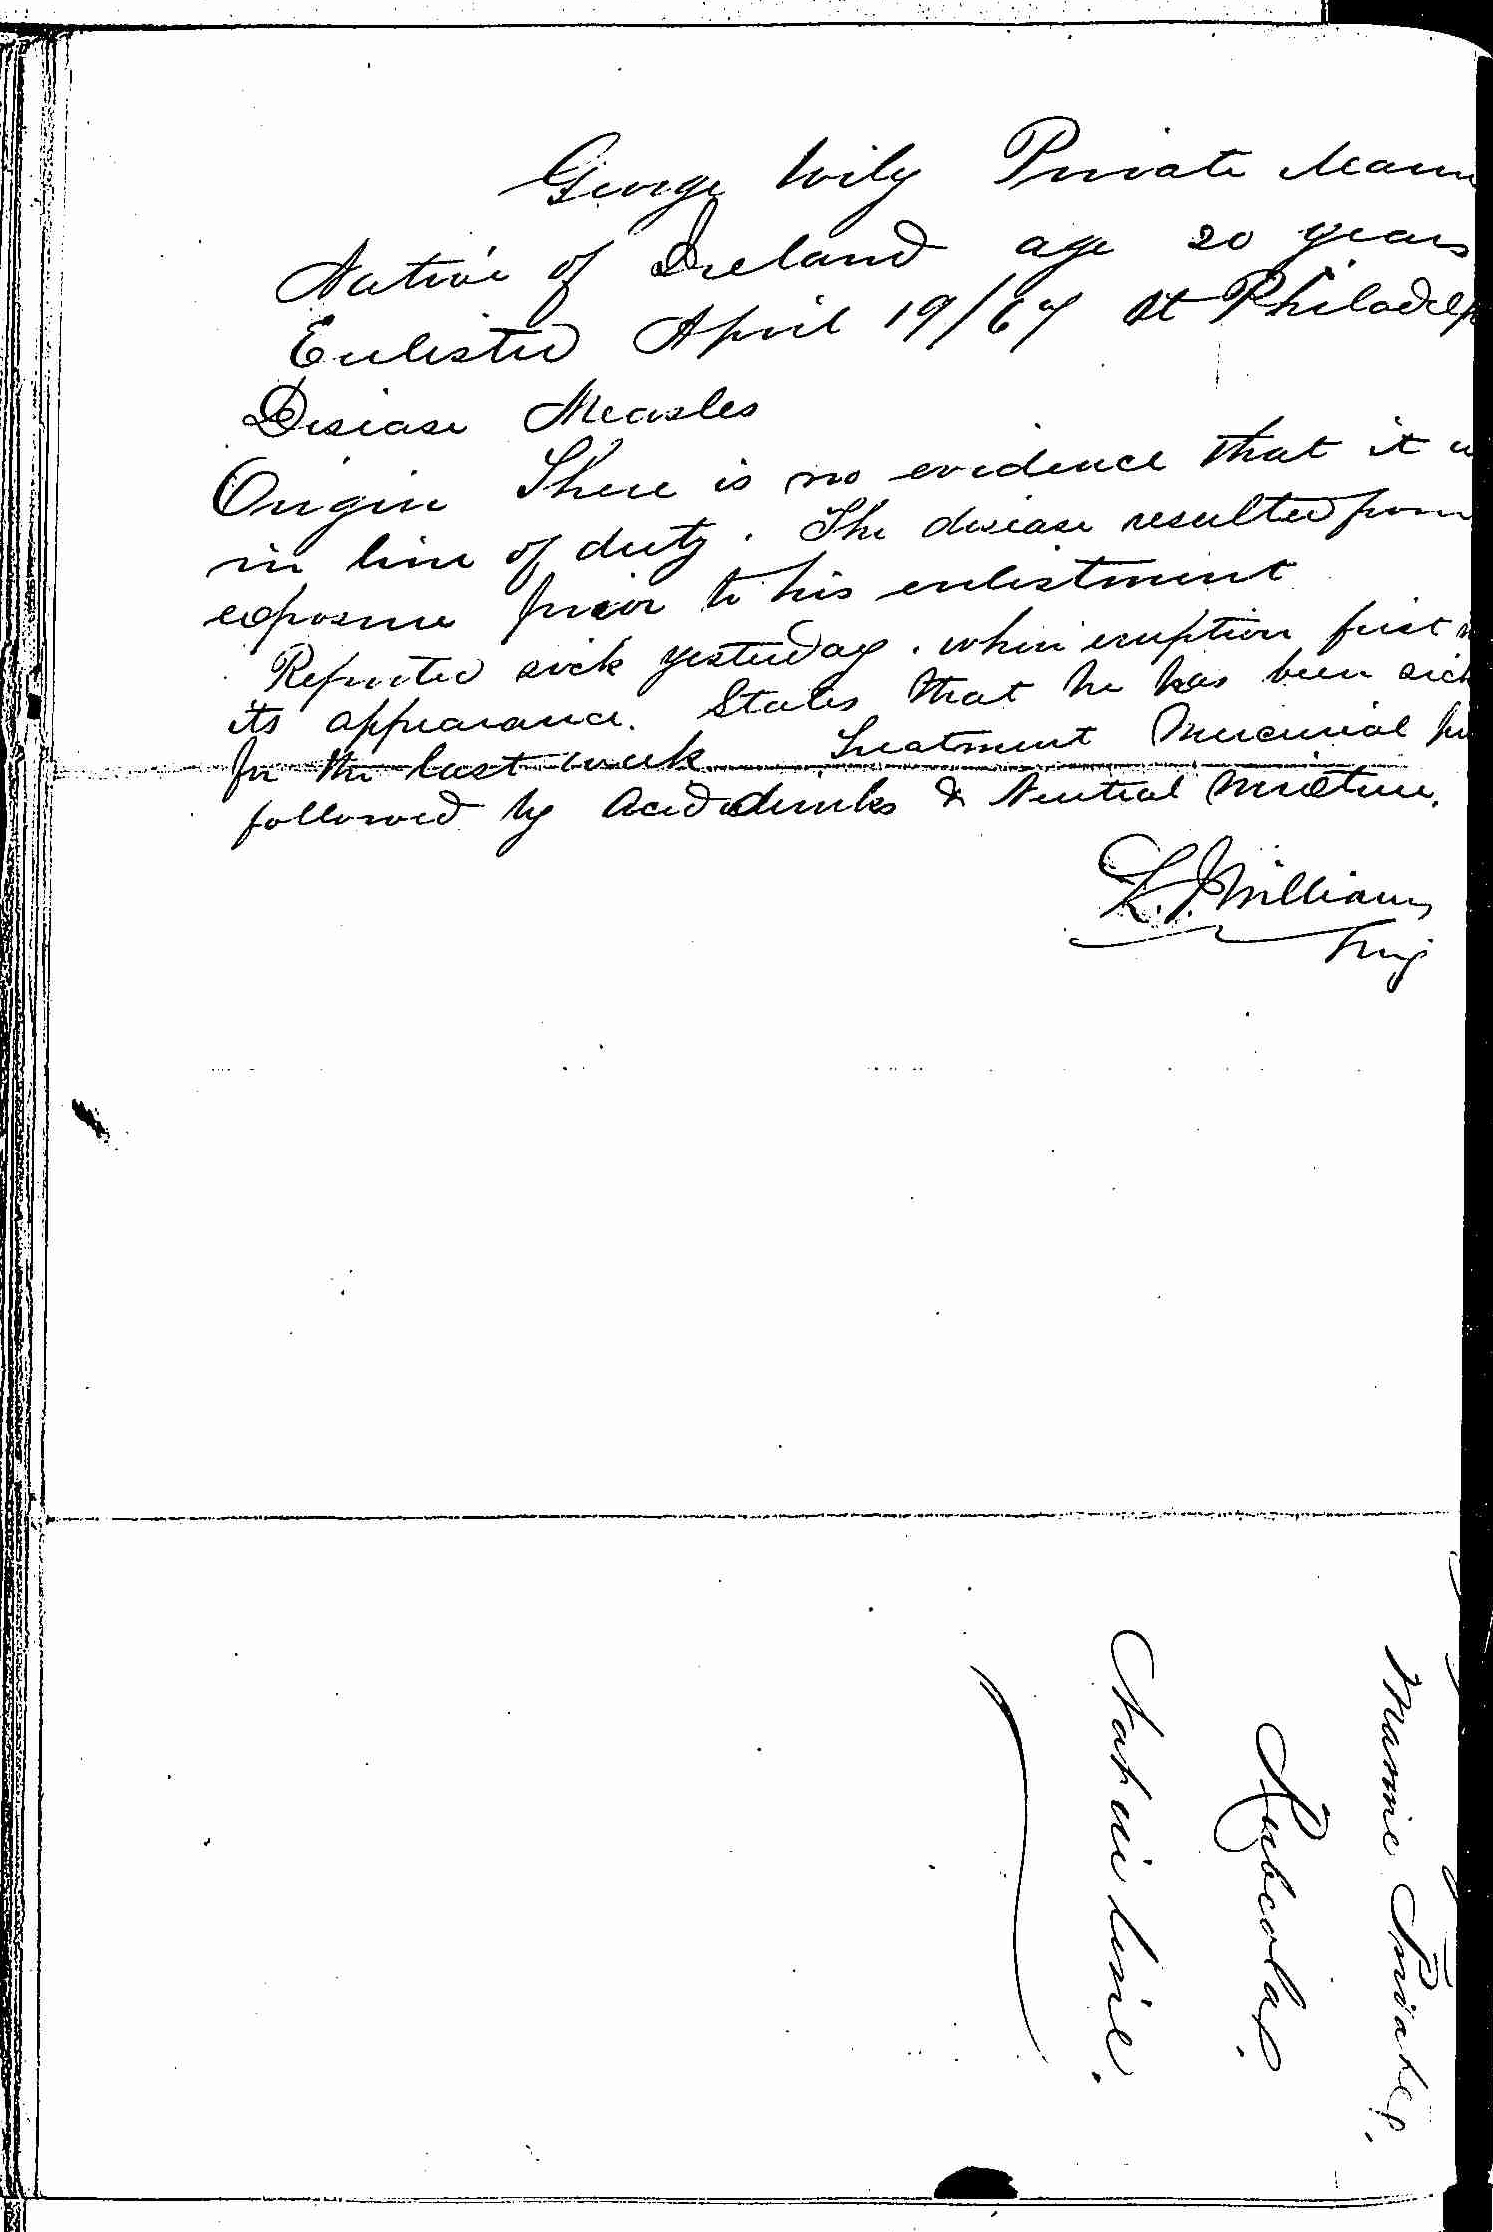 George Wily Private Marin
Native of Ireland age 20 years
Enlisted April 19/67 at Philadelp
Disease Measles
Origin There is no evidence that it w
in line of duty. The disease resulted from
exposure prior to his enlistment
Reported sick yesterday. when eruption first m
its appearance. States that he has been sick
for the last week Treatment Mercurial pu
followed by acid drinks & Neutral mixture.
L. J. Williams
Surg
Marine Private.
Rubeola.
Not in line.